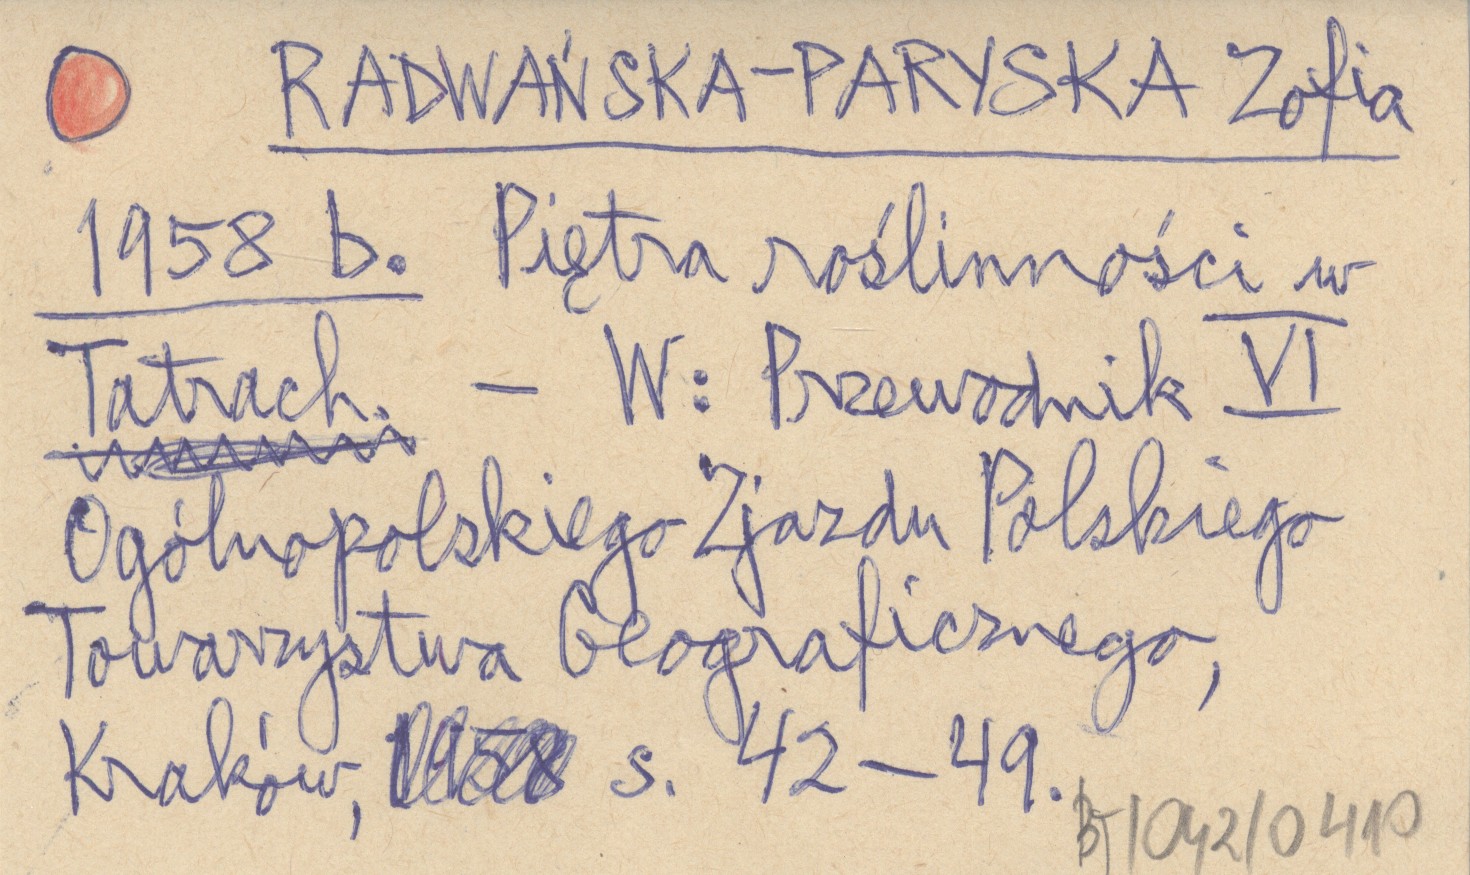 RADWAŃSKA-PARYSKA Zofia
1958 b. Piętra roślinności w
Tatrach. – W: Przewodnik VI
Ogólnopolskiego Zjazdu Polskiego
Towarzystwa Geograficznego,
Kraków, 1958 s. 42–49.
/042/0410